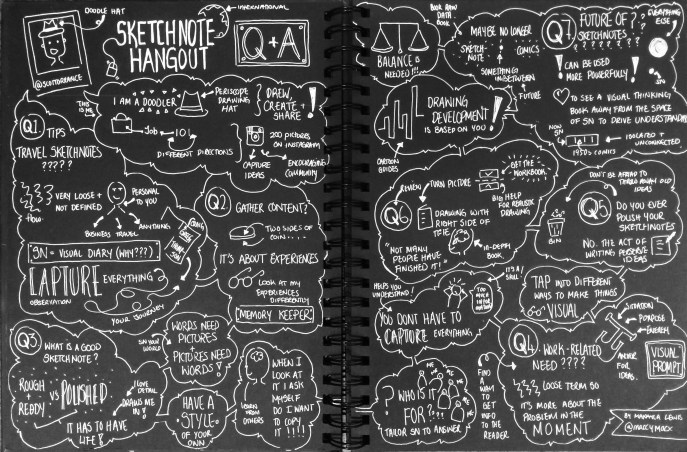 DOODLE HAT
INTERNATIONAL
SKETCHNOTE
HANGOUT
Q+A
@SCOTTORRANCE
THIS IS ME
I AM A DOODLER
PERISCOPE
DRAWING
HAT
DRAW,
CREATE +
SHARE
!
JOB
101
DIFFERENT DIRECTIONS
200 PICTURES
ON INSTAGRAM
CAPTURE
IDEAS
ENCOURAGING
COMMUNITY
Q1
TIPS
TRAVEL SKETCHNOTES
?????
VERY LOOSE +
NOT DEFINED
FLOW
PERSONAL
TO YOU
BUSINESS
TRAVEL
ANYTHING
SN = VISUAL DIARY (WHY???)
CAPTURE EVERYTHING
OBSERVATION
YOUR JOURNEY
Q2
GATHER CONTENT?
TWO SIDES OF
COIN....
IT'S ABOUT EXPERIENCES
LOOK AT MY
EXPERIENCES
DIFFERENTLY
MEMORY KEEPER
Q3
WHAT IS A GOOD
SKETCHNOTE?
ROUGH +
READY
VS
POLISHED
I LOVE
DETAIL
DRAWS ME
IN!
IT HAS TO HAVE
LIFE!
SN YOUR
WORLD
WORDS NEED
PICTURES
PICTURES NEED
WORDS!
HAVE A
STYLE
OF YOUR
OWN
LEARN FROM
OTHERS
WHEN I
LOOK AT
IT I ASK
MYSELF
DO I WANT
TO COPY
IT !!!!
BALANCE
NEEDED!!!
MAYBE NO LONGER
SKETCH-
NOTE
COMICS
SOMETHING
IN BETWEEN
FUTURE
Q7
FUTURE OF
SKETCHNOTES
???????
EVERYTHING
ELSE
SN
! CAN BE USED
MORE POWERFULLY!
TO SEE A VISUAL THINKING
BOOK AWAY FROM THE SPACE
OF SN TO DRIVE UNDERSTANDING
NOW
SN
ISOLATED +
UNCONNECTED
1950s COMICS
DRAWING
DEVELOPMENT
IS BASED ON YOU!
CARTOON
GUIDES
Q6
REVIEW
TURN PICTURE
GET THE
WORKBOOK
BIG HELP
FOR REALISTIC
DRAWING
DRAWING WITH
RIGHT SIDE OF
IN-DEPTH
BOOK
"NOT MANY
PEOPLE HAVE
FINISHED IT!"
DON'T BE AFRAID TO
THROW AWAY OLD
IDEAS
Q5
DO YOU EVER
POLISH YOUR
SKETCHNOTES
BIN
NO. THE ACT OF
WRITING
IDEAS
HELPS YOU
UNDERSTAND!
TOO
MUCH
INFORMATION
IT'S A
SKILL
YOU DONT HAVE TO
CAPTURE EVERYTHING
TAP INTO DIFFERENT
WAYS TO MAKE THINGS
VISUAL
Q4
WORK-RELATED
NEED ????
SITUATION
PURPOSE
ANCHOR
FOR
IDEAS.
VISUAL
PROMPT
LOOSE TERM SO
IT'S MORE ABOUT THE
PROBLEM IN THE
MOMENT
ME
WHO IS IT
FOR?
TAILOR SN TO ANSWER
FIND
A
WAY TO
GET
INFO TO
THE
READER
BY MAKAYLA LEWIS
@MACCYMACX